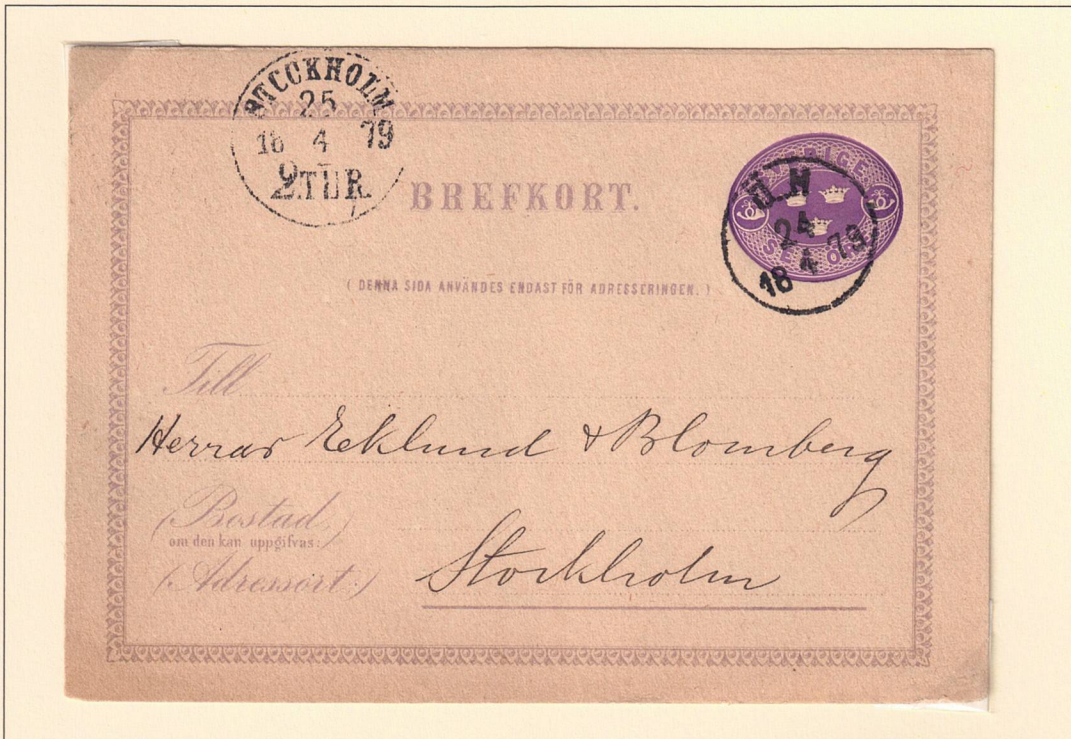 STOCKHOLM
25
18 4 79
2.TUR.
BREFKORT.
SVERIGE
SEX ÖRE
Ö.N
24
18 4 79
( DENNA SIDA ANVÄNDES ENDAST FÖR ADRESSERINGEN. )
Till
Herrar Ecklund & Blomberg
(Bostad,)
om den kan uppgifvas:
Stockholm
(Adressort:)